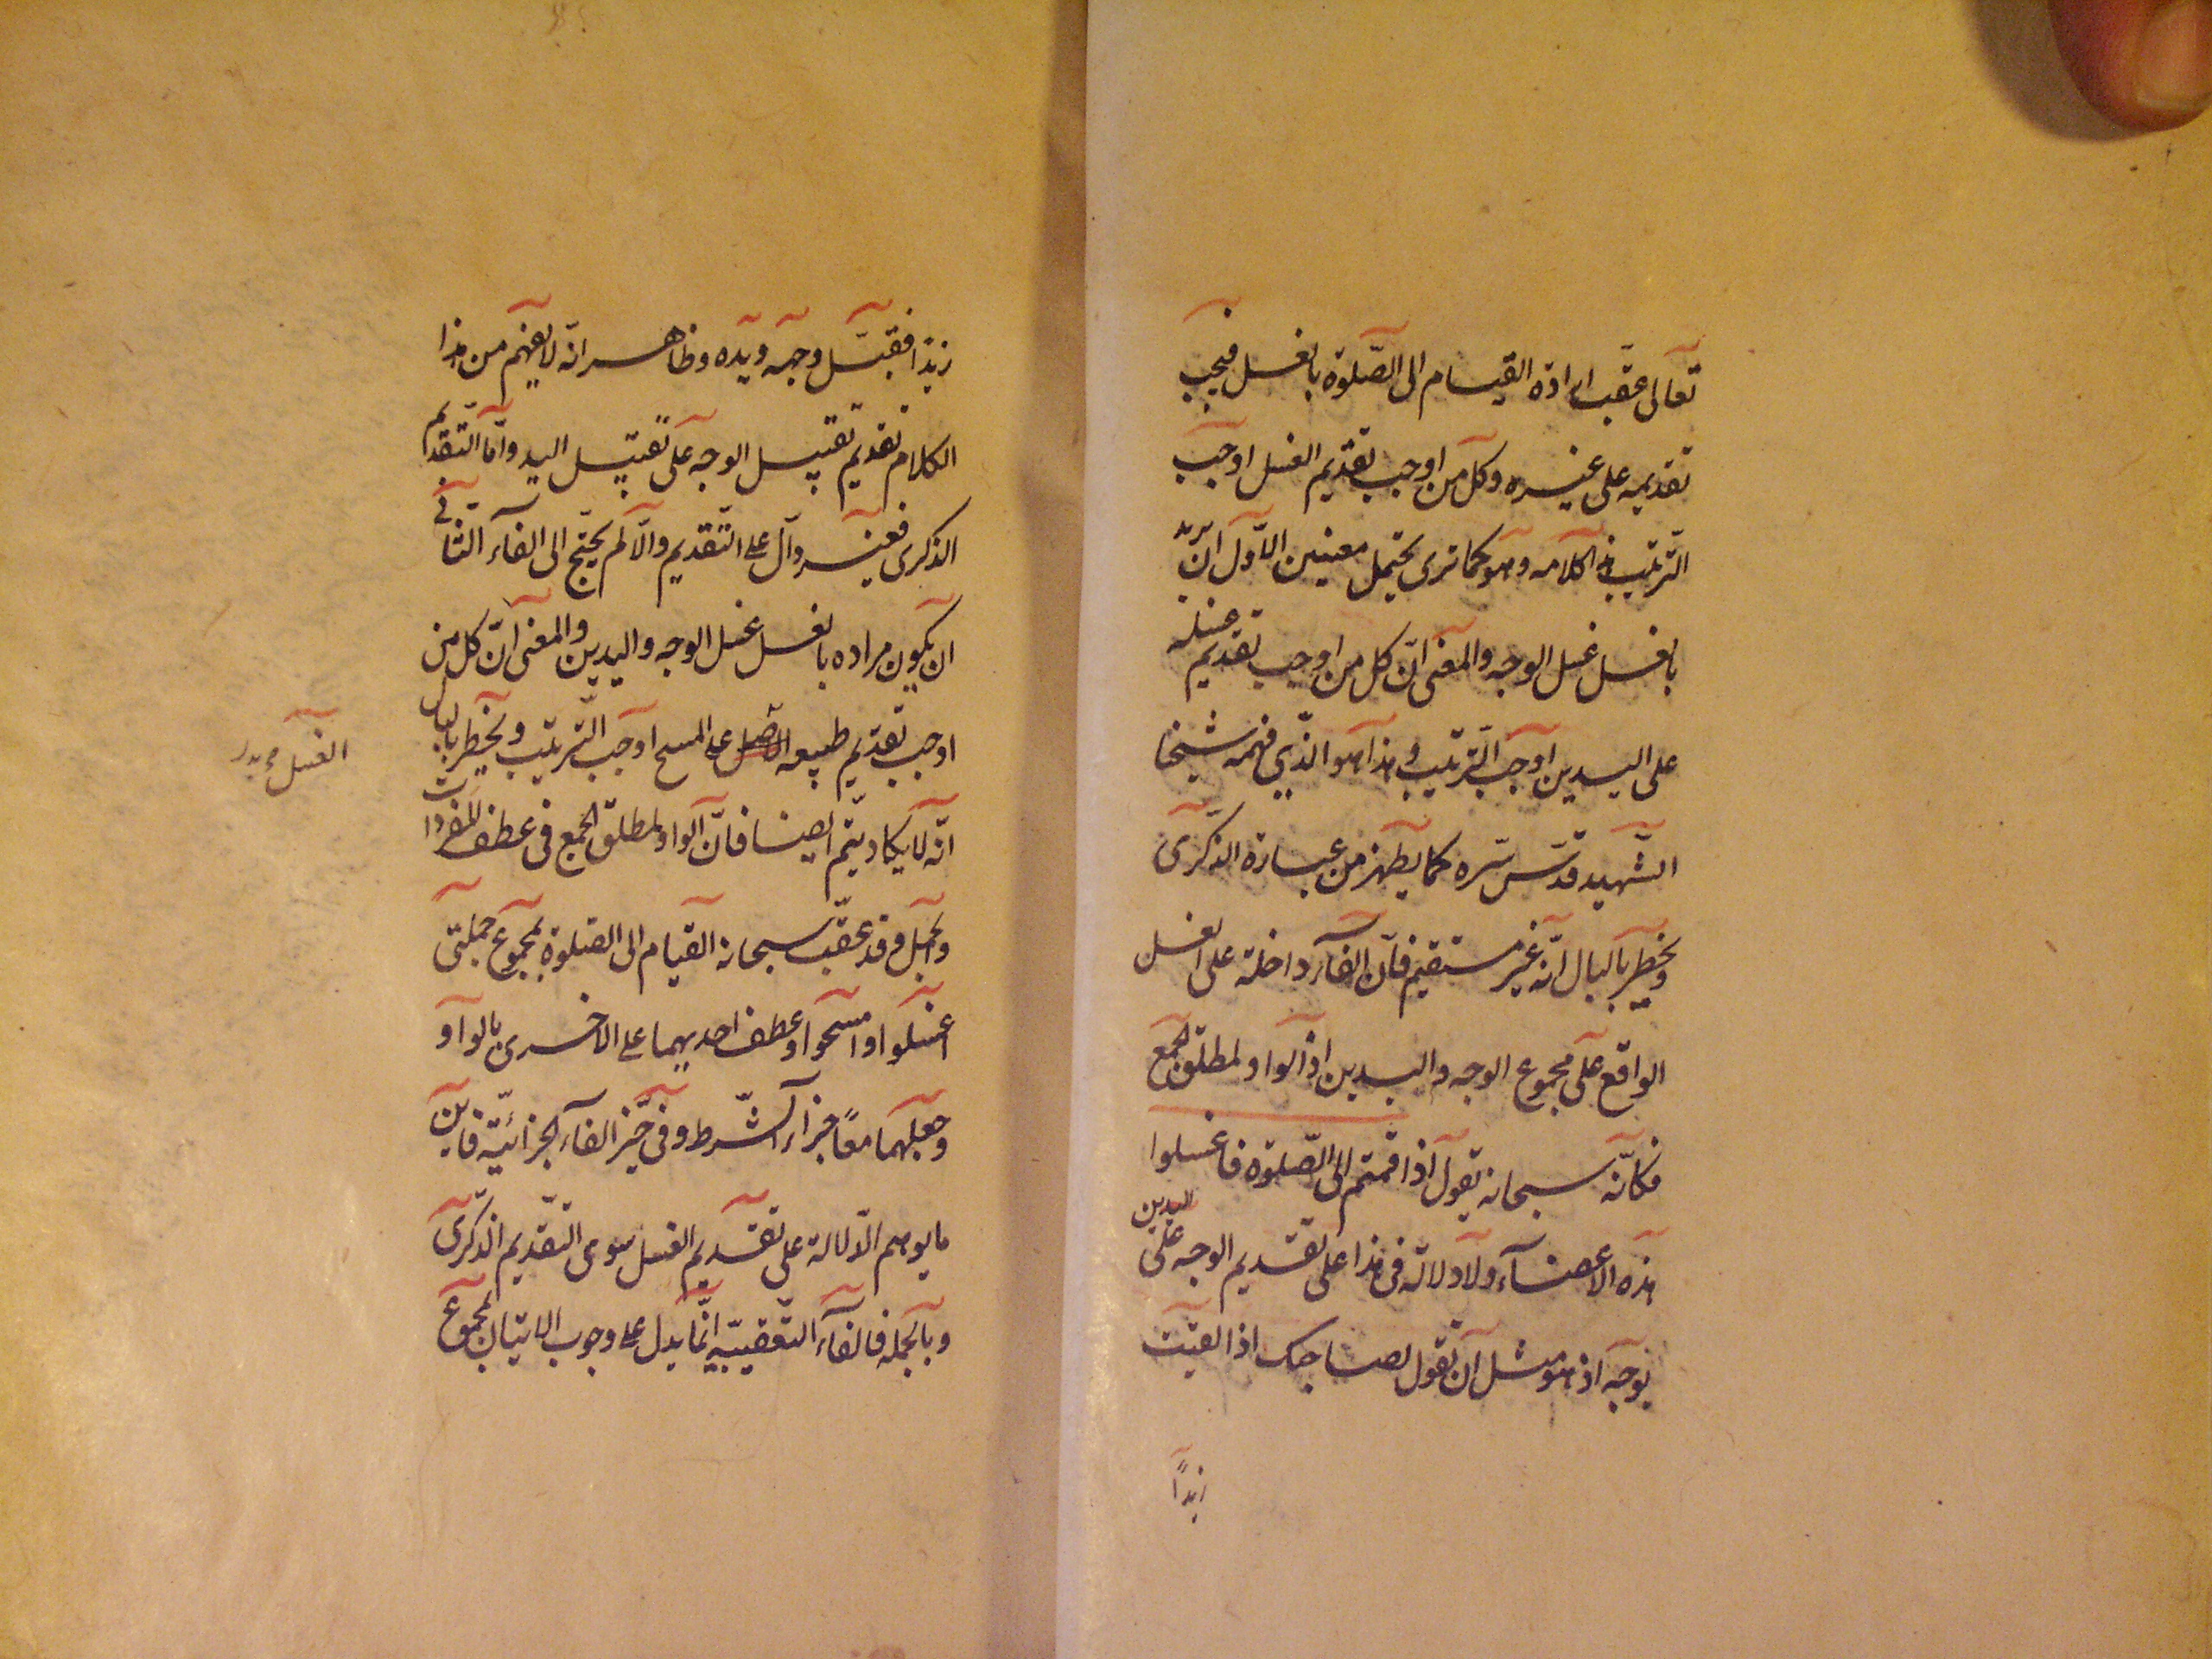 تعالى عقب ارادة القيام الى الصّلوة بالغسل فيجب
تقديمه على غيره وكل من اوجب تقديم الغسل اوجب
الترتيب في كلامه وهو كما ترى يحتمل معنيين الاوّل ان يريد
بالغسل غسل الوجه والمعنى انّ كل من اوجب تقديم غسله
على اليدين اوجب الترتيب وهذا هو الذي فهمه شيخنا
الشّهيد قدّس سّره كما يظهر من عبارة الذكرى
ويخطر بالبال انّه غير مستقيم فانّ الفآء داخلة على الغسل
الواقع على مجموع الوجه واليدين اذ الواو لمطلق الجمع
فكانّه سبحانه يقول اذا قمتم الى الصّلوة فاغسلوا
هذه الاعضآء ولا دلالة في هذا على تقديم الوجه على اليدين
بوجه اذ هو مثل ان تقول لصاحبك اذا لقيت
زيداً
زيدًا فقبّل وجهه ويده وظاهر انّه لا يفهم من هذا
الكلام تقديم تقبيل الوجه على تقبيل اليد وامّا التّقديم
الذكرى فغير دال على التّقديم والّا لم يحتج الى الفآء الثّانى
ان يكون مراده بالغسل غسل الوجه واليدين والمعنى انّ كل من
اوجب تقديم طبيعة على المسح اوجب التّرتيب ويخطر بالبال
الغسل
انّه لا يكاد يتّم ايضا فانّ الواو لمطلق الجمع فى عطف المفردات
والجمل وقد عقّب سبحانه القيام الى الصّلوة بمجموع جملتى
اغسلوا وامسحوا وعطف احديهما على الاخرى بالواو
وجعلهما معًا جزاء الشّرط وفى حيّز الفآء الجزائيّة فاين
ما يوهم الدّلالة على تقديم الغسل سوى التّقديم الذّكرى
وبالجملة فالفآء التّعقيبيّة انّما يدل على وجوب الاتيان بمجموع